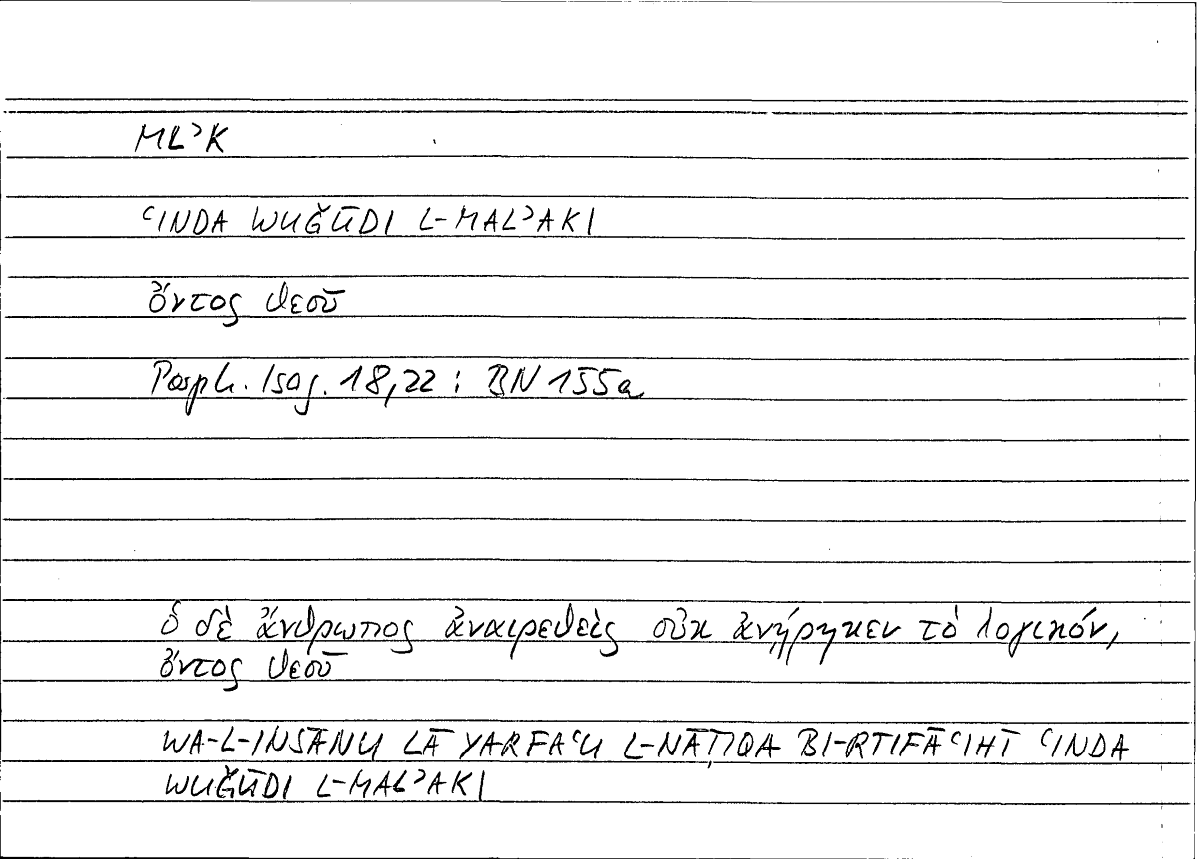 MLʾK
ʿINDA WUǦŪDI L-MALʾAKI
ὄντος θεοῦ
Porph. Isag. 18,22 : BN 155a
ὁ δὲ ἄνθρωπος ἀναιρεθεὶς οὐκ ἀνῄρηκεν τὸ λογικόν,
ὄντος θεοῦ
WA-L-INSĀNU LĀ YARFAʿU L-NĀṬIQA BI-RTIFĀʿIHĪ ʿINDA
WUǦŪDI L-MALʾAKI